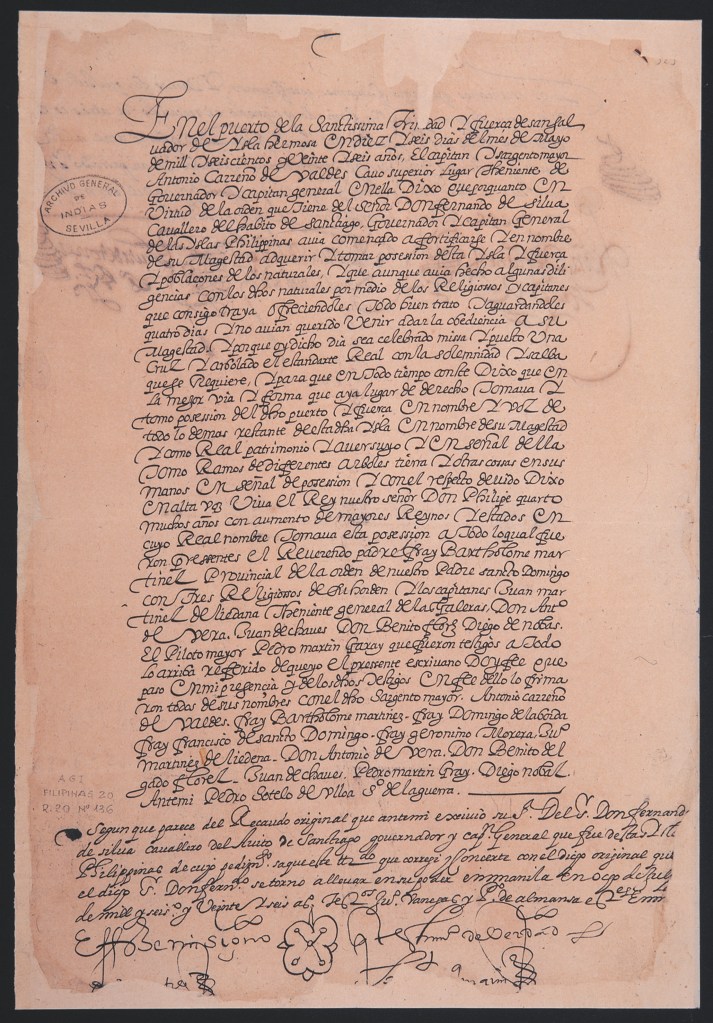 En el puerto de la Sanctissima Trinidad Y fuerça de san sal
uador de Ysla hermosa en diez Y seis dias del mes de Mayo
de mill Y seiscientos y Veinte Y seis años, El capitan Y sargento mayor
Antonio Carreño de Valdes Cauo superior Lugar theniente de
Gouernador Y capitan general en ella Dixo que porquanto en
Virtud de la orden que tiene del Señor Don fernando de silua
Cauallero del habito de Santiago, Gouernador Y capitan General
de las Yslas Philippinas auia començado a fortificarse Y en nombre
de su Magestad adquerir Y tomar posesion desta Ysla Y fuerça
Y poblaçones de los naturales, Y que aunque auia hecho algunas dili
gencias con los dhos naturales por medio de los Religiosos Y capitanes
que consigo traya ofreciendoles todo buen trato Y aguardandoles
quatro dias Y no auian querido venir a dar la obediencia a su
Magestad. Y porque oy dicho dia se a celebrado missa Y puesto Una
Cruz Y arbolado el estandarte Real con la solemnidad Y salba
que se Requiere, Y para que en todo tiempo conste Dixo que en
la mejor via Y forma que aya lugar de derecho Tomaua Y
tomo posesión del dho puerto Y fuerça en nombre Y voz de
todo lo demas restante de esta dha Ysla en nombre de su Magestad
Y como Real patrimonio Y auer suyo Y en señal de lla
Tomo Ramos de differentes arboles tierra Y otras cossas en sus
manos en señal de posesion Y con el respeto deuido Dixo
en alta voz Viua el Rey nuestro señor Don Philipe quarto
muchos años con aumento de mayores Reynos Y estados en
cuyo Real nombre Tomaua esta posesion a todo lo qual fue
ron pressentes el Reuerendo padre fray Bartholome mar
tinez Prouincial de la orden de nuestro Padre sancto Domingo
con tres Religiossos de su horden Y los capitanes Juan mar
tinez de liedena Theniente general de las Galeras. Don Antº
de Vera. Juan de chaues Don Benito florez Diego de nobas.
El Piloto mayor Pedro martin Garay que fueron testigos a todo
lo arriba referido de que yo el pressente escriuano Doy fee que
paso en mi presençia Y de los dhos testigos en fee dello lo firma
ron todos de sus nombres con el dho Sargento mayor. Antonio carreño
de Valdes. fray Bartholome martinez. fray Domingo de la borda
fray francisco de sancto Domingo. fray geronimo Morera. Juº
martinez de liedena. Don Antonio de Vera. Don Benito del
gado florez. Juan de chaues. Pedro martin Gray. Diego nobal.
Ante mi Pedro Sotelo de Vlloa Sº de la guerra.
Segun que parece del Recaudo original que ante mi exiuio su Sª Del Sr Don fernando
de silua cauallero del Auito de Santiago gouernador y capn General que fue desta Ysla
Philippinas de cuyo pedimº saque este trdo que corregi y concerte con el dicho original que
el dicho Sr Don fernº se torno a lleuar en su poder en manila en de Jul
de mill y seisº y Veinte Y seis aº, Tesos Juº Vanegas y Pº de almansa
En testimº de Verdad
ARCHIVO GENERAL
DE
INDIAS
SEVILLA
AGI
FILIPINAS 20
R.20 Nº 136